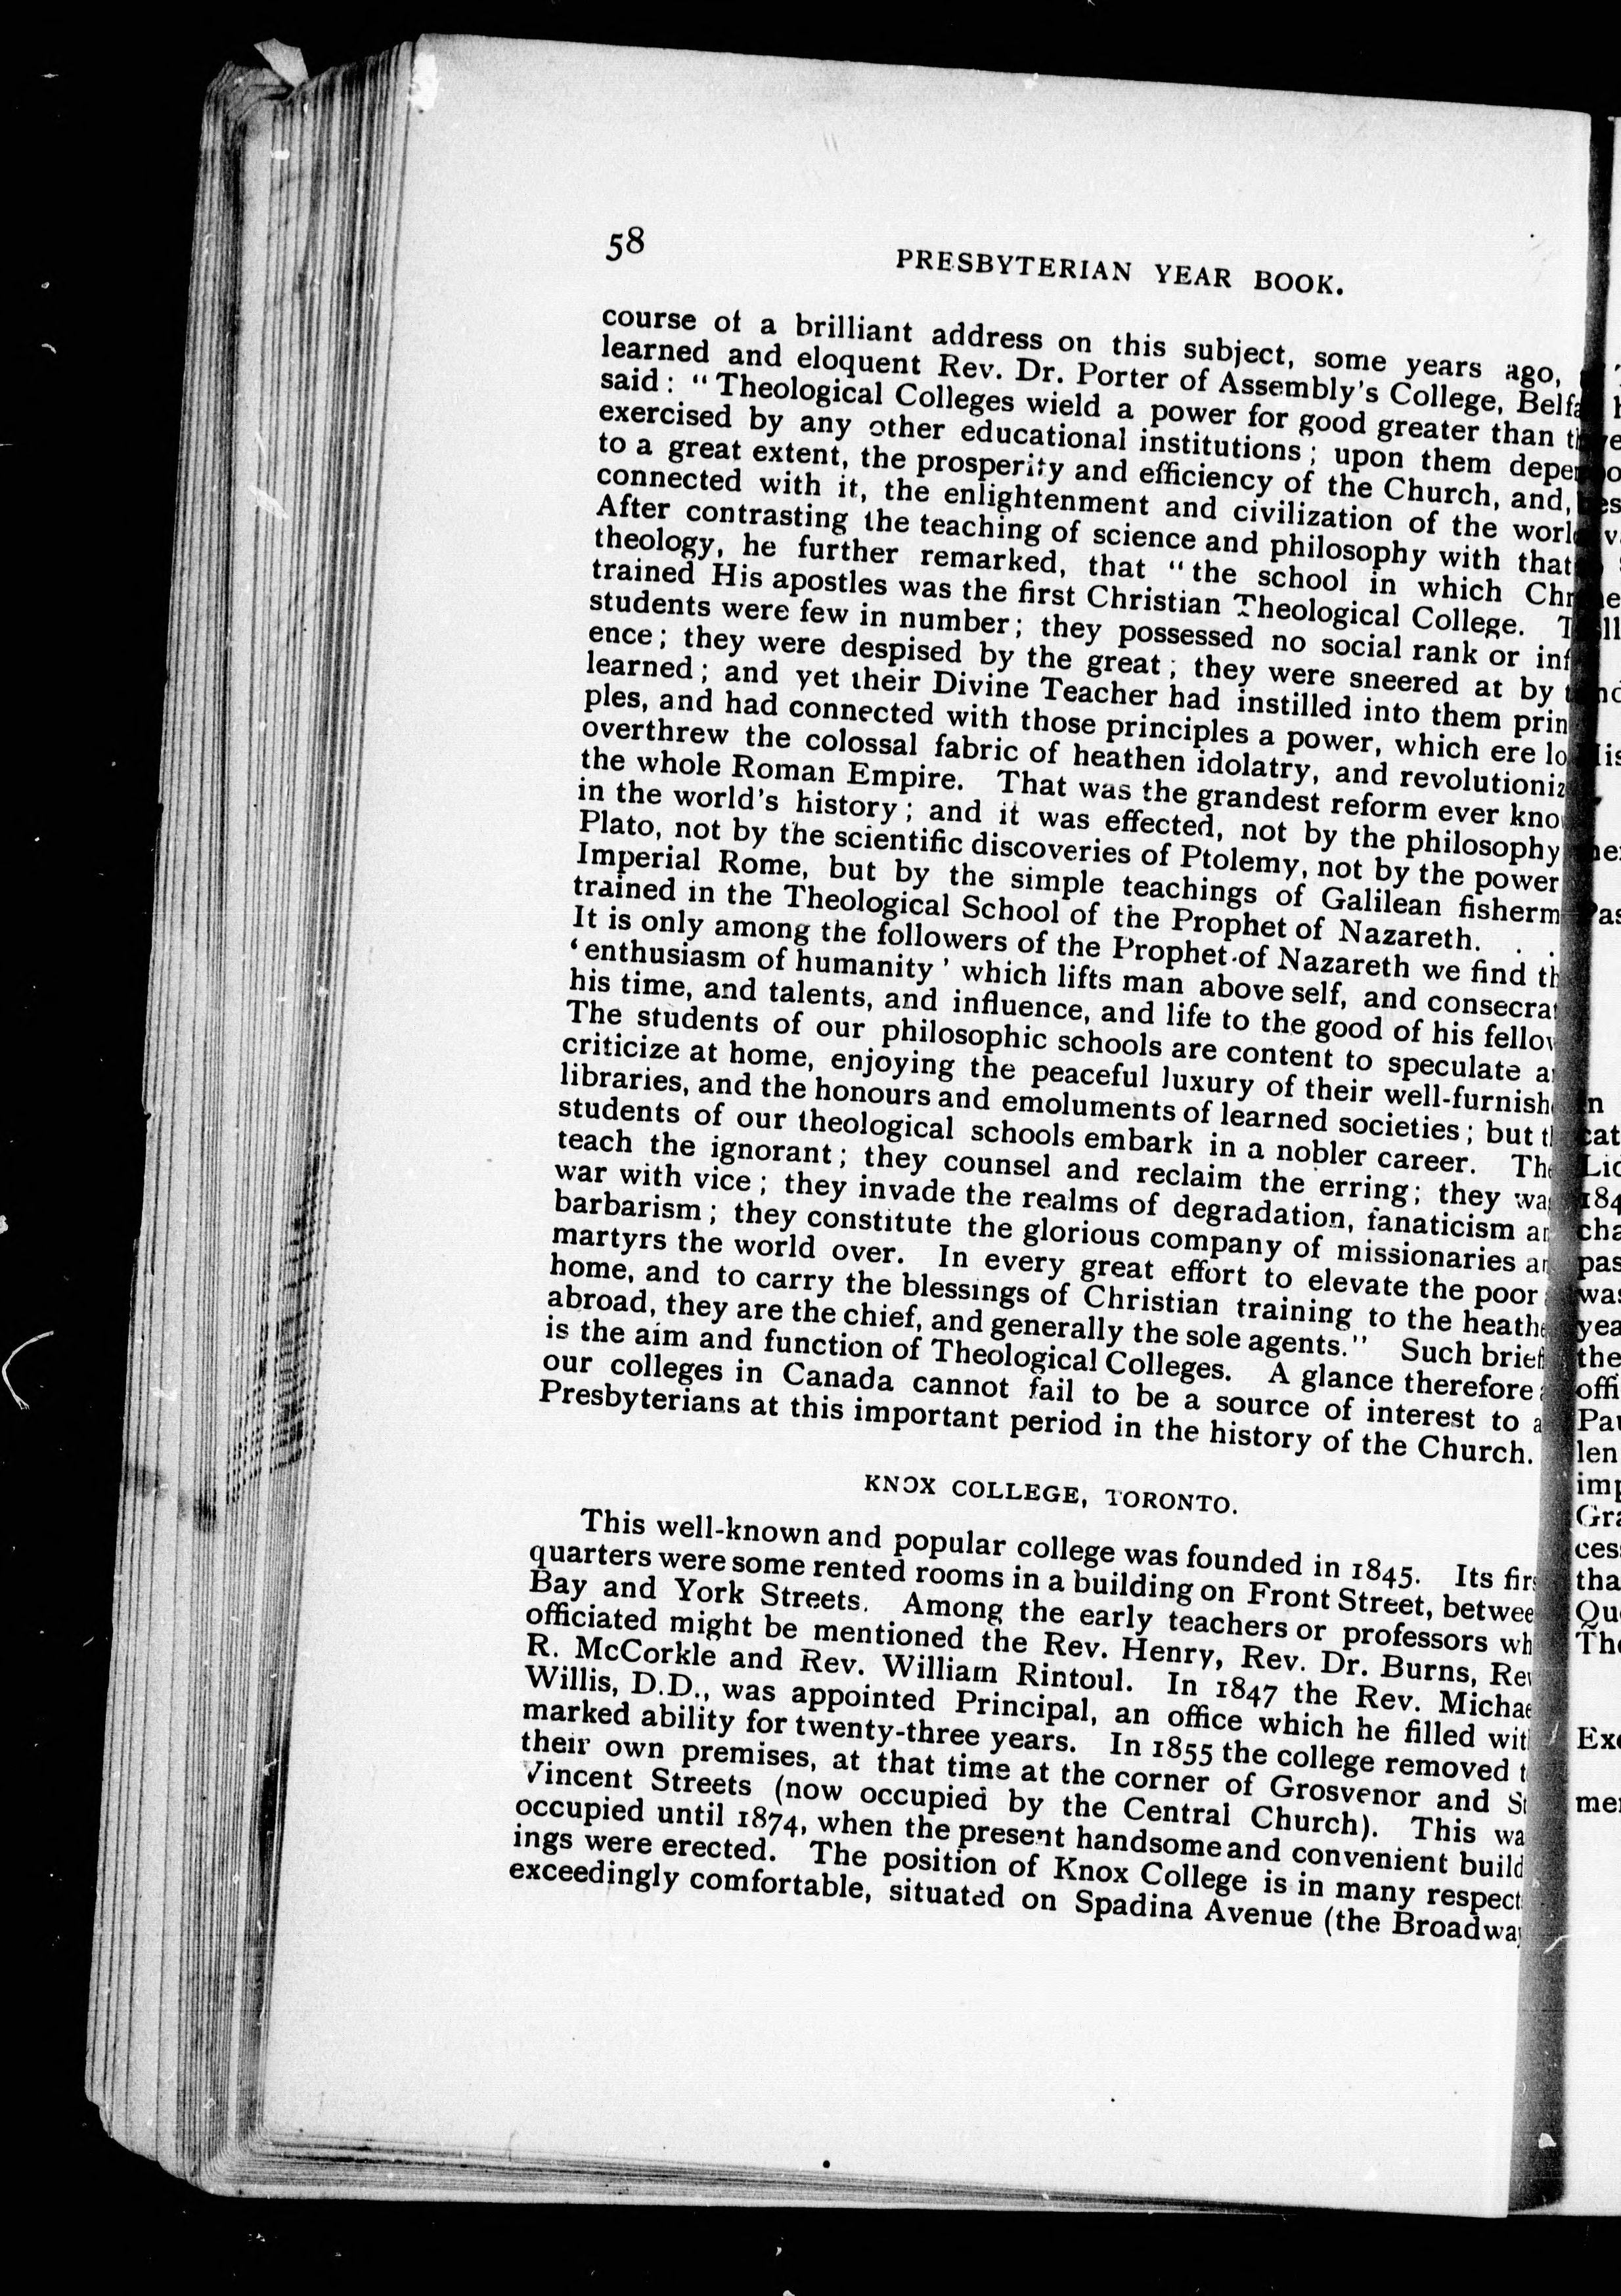 58
PRESBYTERIAN YEAR BOOK.
course of a brilliant address on this subject, some years ago,
learned and eloquent Rev. Dr. Porter of Assembly's College,
said: "Theological Colleges wield a power for good greater than
exercised by any other educational institutions; upon them
to a great extent, the prosperity and efficiency of the Church, and,
connected with it, the enlightenment and civilization of the
After contrasting the teaching of science and philosophy with that
theology, he further remarked, that "the school in which
trained His apostles was the first Christian Theological College.
students were few in number; they possessed no social rank or
ence; they were despised by the great; they were sneered at by
learned; and yet their Divine Teacher had instilled into them
ples, and had connected with those principles a power, which ere
overthrew the colossal fabric of heathen idolatry, and
the whole Roman Empire. That was the grandest reform ever
in the world's history; and it was effected, not by the philosophy
Plato, not by the scientific discoveries of Ptolemy, not by the power
Imperial Rome, but by the simple teachings of Galilean
trained in the Theological School of the Prophet of Nazareth. . .
It is only among the followers of the Prophet of Nazareth we find
'enthusiasm of humanity' which lifts man above self, and
his time, and talents, and influence, and life to the good of his
The students of our philosophic schools are content to speculate
criticize at home, enjoying the peaceful luxury of their
libraries, and the honours and emoluments of learned societies; but
students of our theological schools embark in a nobler career.
teach the ignorant; they counsel and reclaim the erring; they
war with vice; they invade the realms of degradation, fanaticism
barbarism; they constitute the glorious company of missionaries
martyrs the world over. In every great effort to elevate the poor
home, and to carry the blessings of Christian training to the
abroad, they are the chief, and generally the sole agents." Such
is the aim and function of Theological Colleges. A glance therefore
our colleges in Canada cannot fail to be a source of interest to
Presbyterians at this important period in the history of the Church.
KNOX COLLEGE, TORONTO.
This well-known and popular college was founded in 1845. Its
quarters were some rented rooms in a building on Front Street,
Bay and York Streets. Among the early teachers or professors
officiated might be mentioned the Rev. Henry, Rev. Dr. Burns,
R. McCorkle and Rev. William Rintoul. In 1847 the Rev.
Willis, D.D., was appointed Principal, an office which he filled
marked ability for twenty-three years. In 1855 the college removed
their own premises, at that time at the corner of Grosvenor and
Vincent Streets (now occupied by the Central Church). This
occupied until 1874, when the present handsome and convenient
ings were erected. The position of Knox College is in many
exceedingly comfortable, situated on Spadina Avenue (the